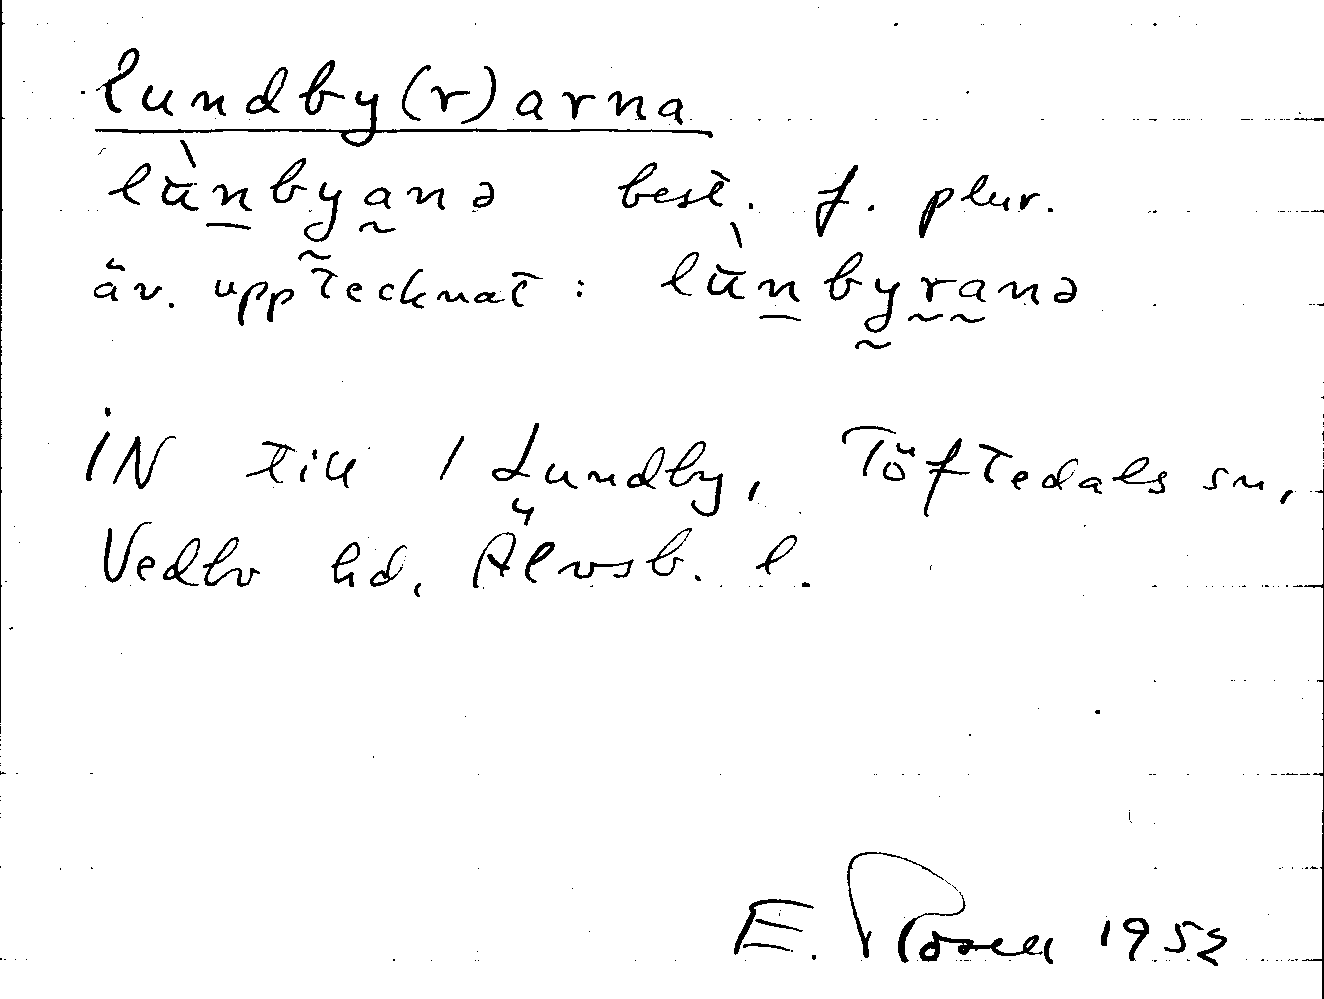 lundby(r)arna
lùnbyanə best. f. plur.
äv. upptecknat: lùnbyranə
IN till 1 Lundby, Töftedals sn,
Vedbo hd, Älvsb. l.
E. Rosell 1952